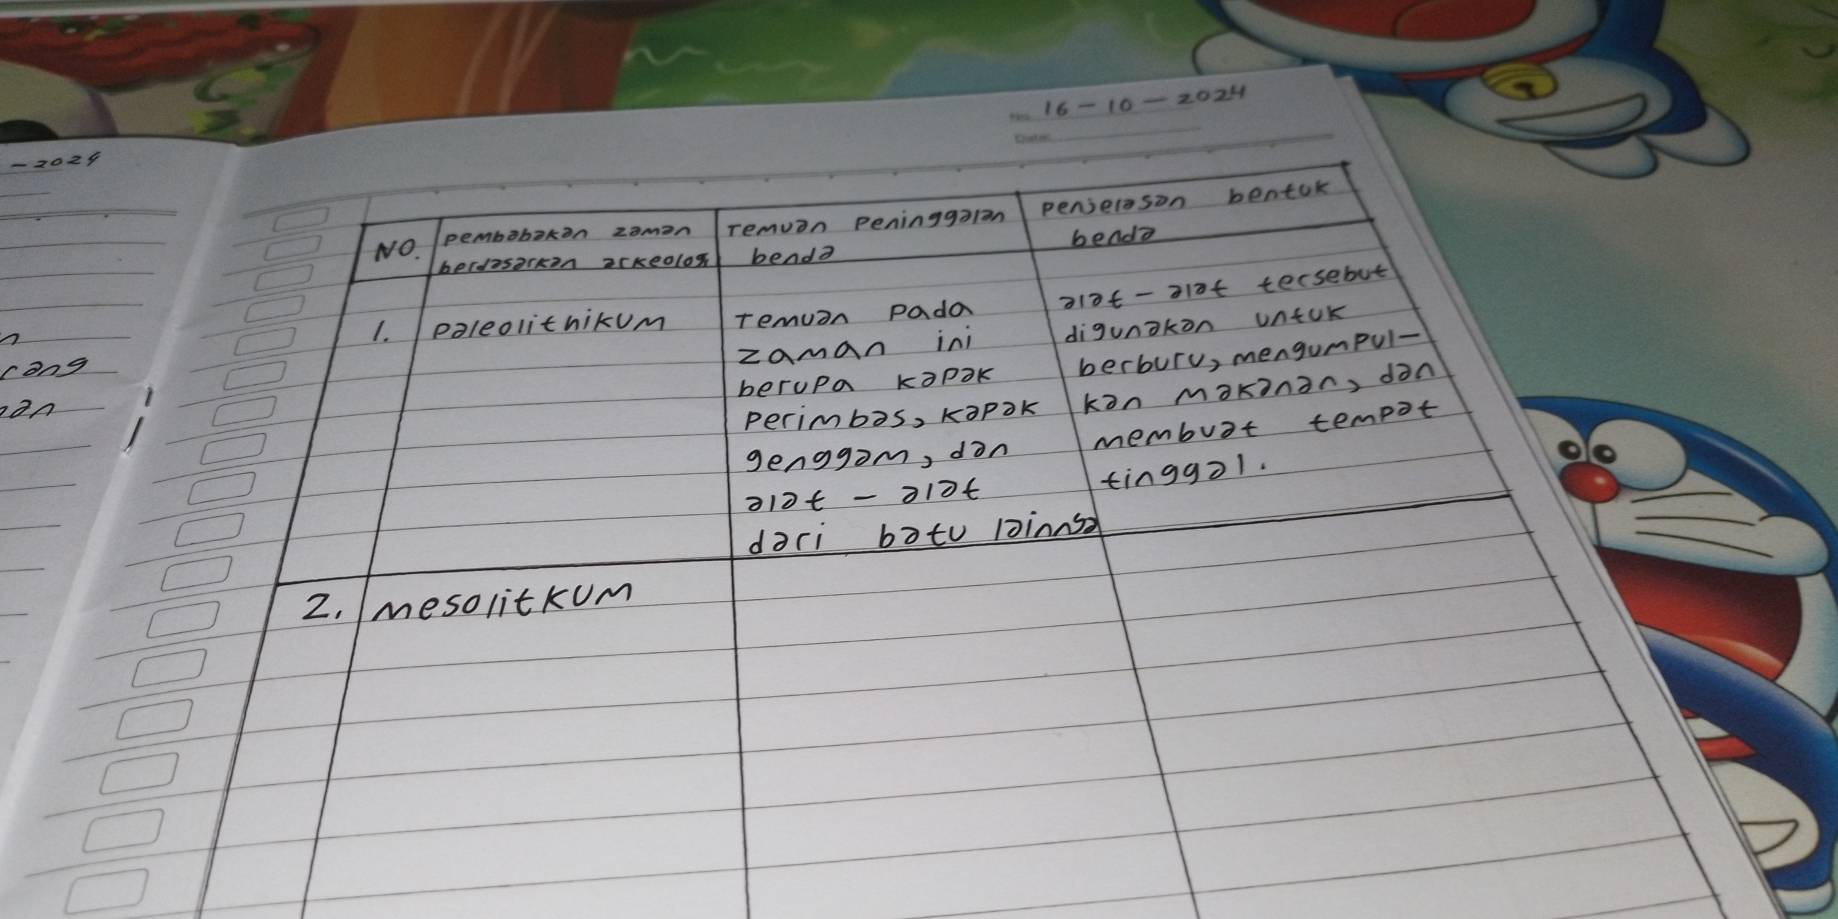 16-10-2024
No.
Date:
-2024
NO.
pembabakan zaman
berdasarkan arkeolog
Temuan Peninggalan
benda
penjelasan bentuk
benda
1.
paleolithikum
Temuan pada
zaman ini
berupa kapak
perimbas, kapak
genggam, dan
alat - alat
dari batu lainnya
alat - alat tersebut
digunakan untuk
berburu, mengumpul-
kan makanan, dan
membuat tempat
tinggal.
2.
mesolitkum